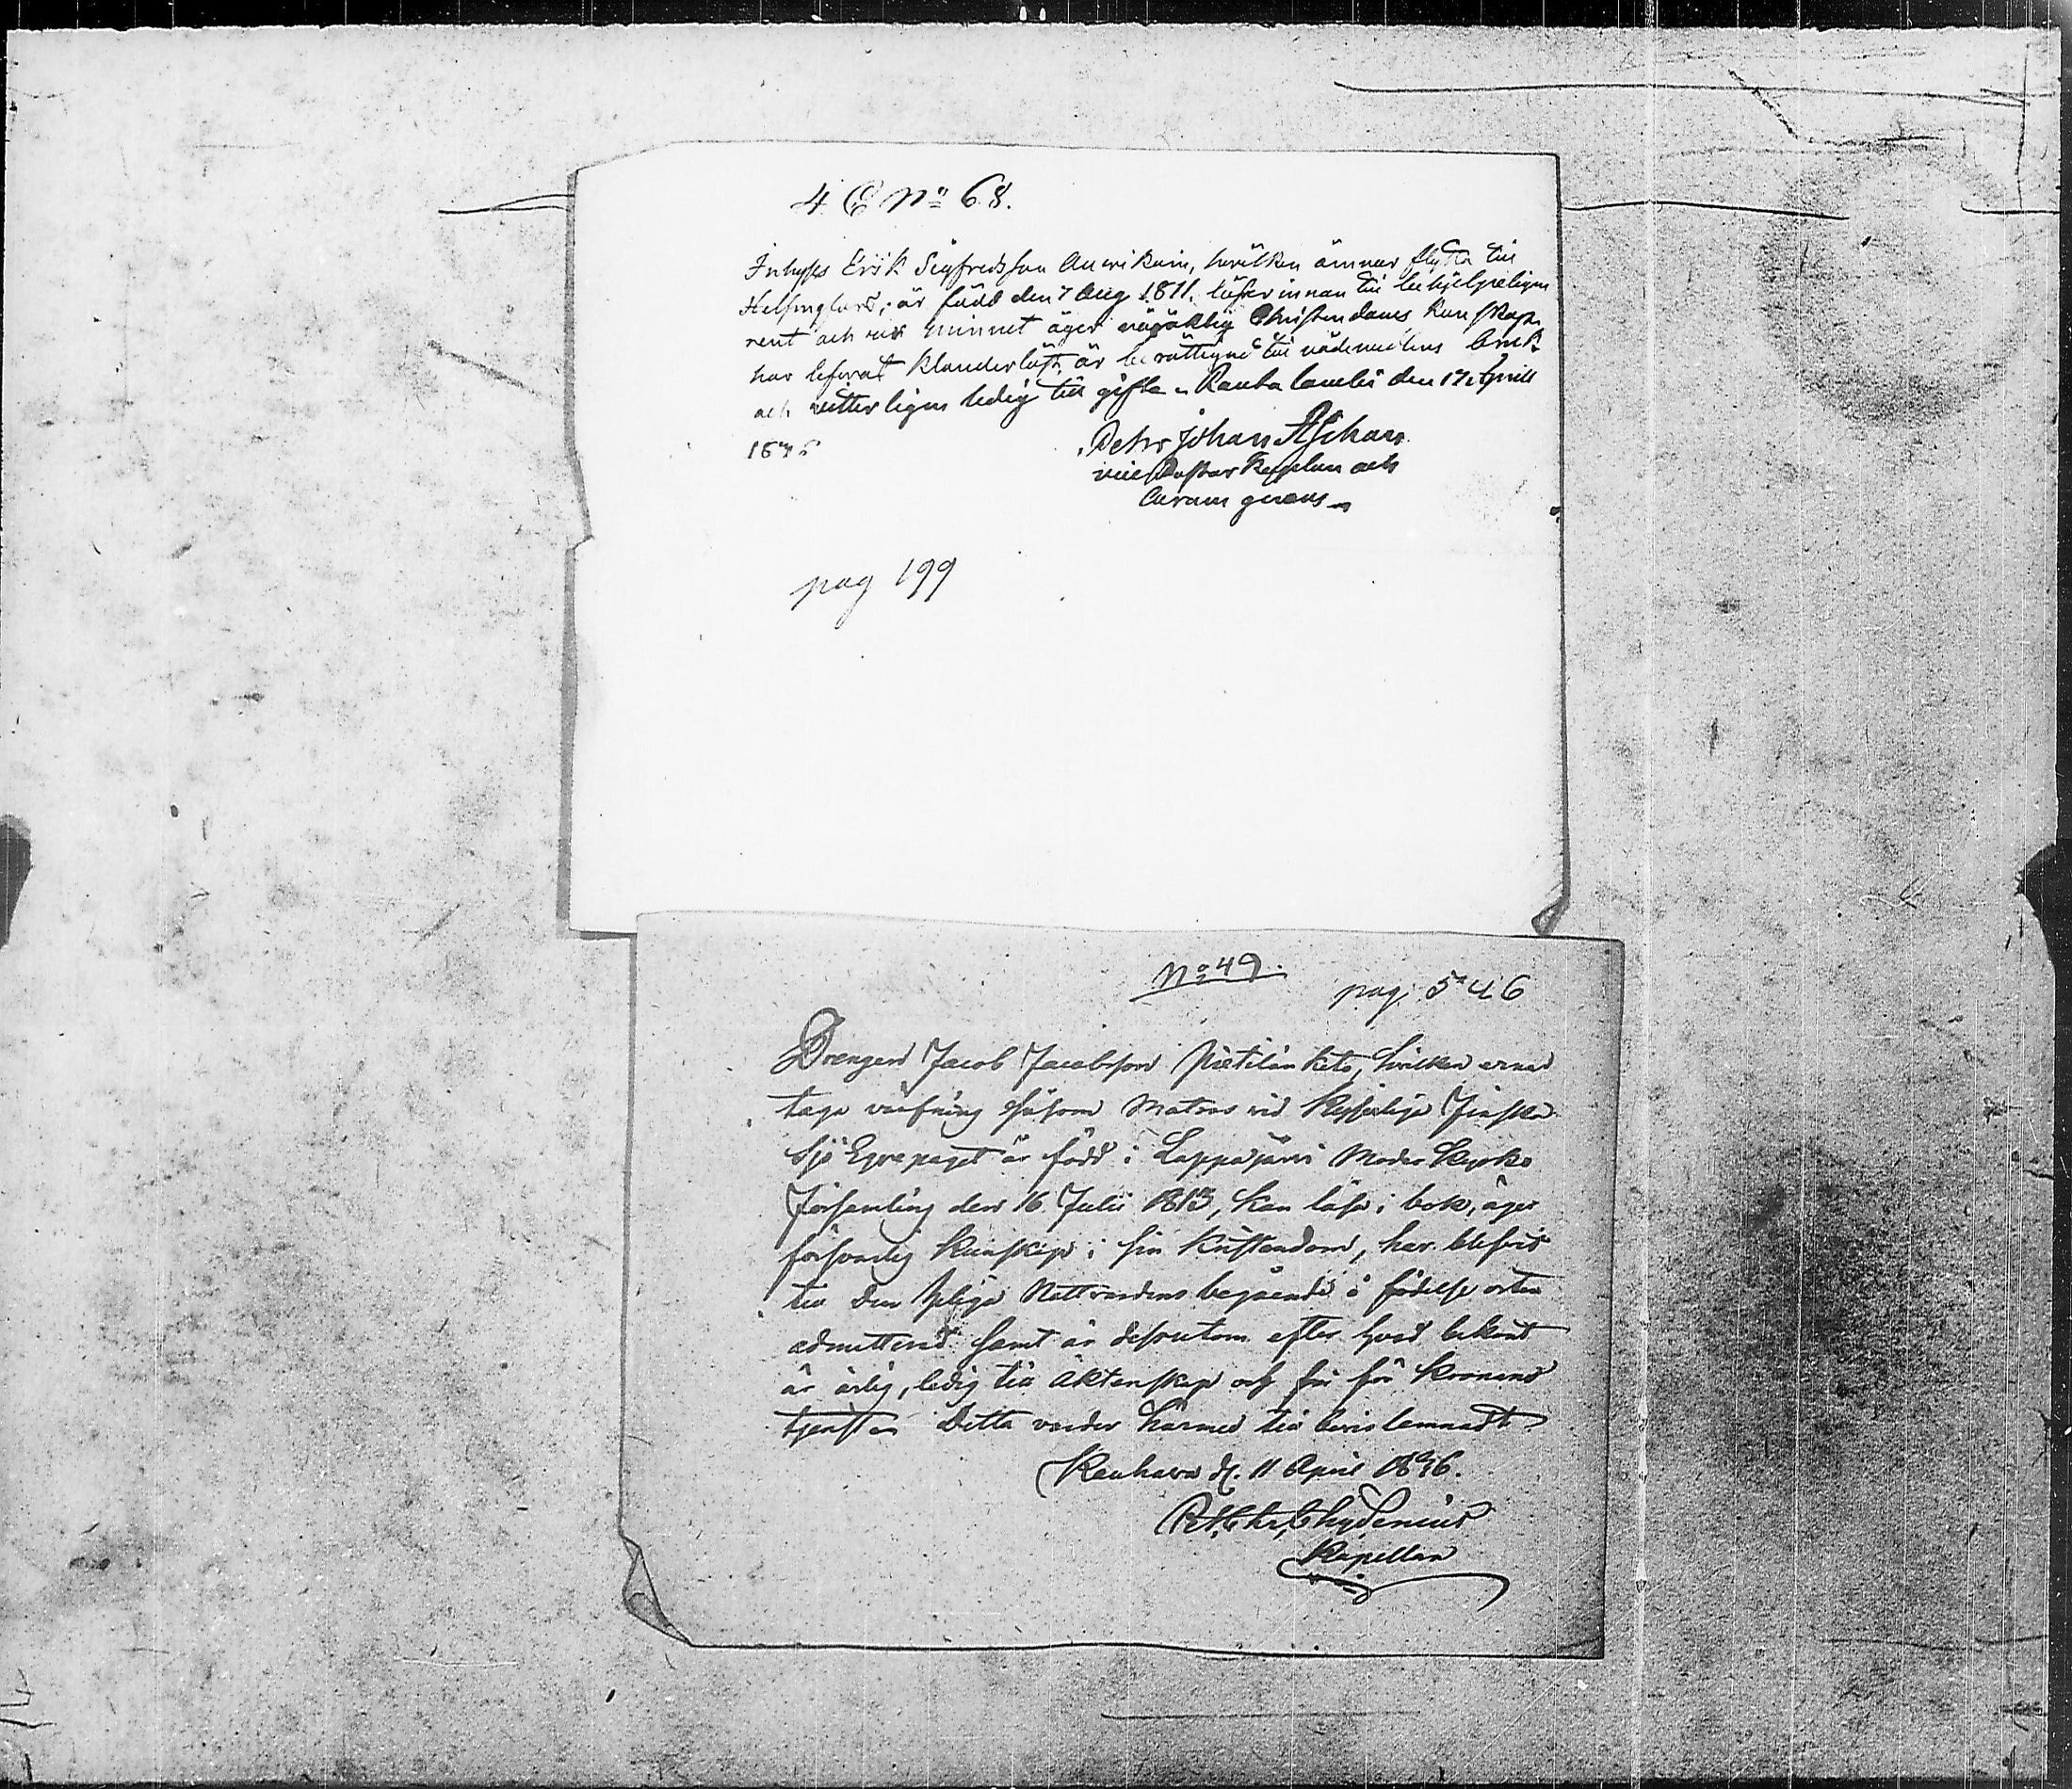 4. E No 68.
Inhyss Erik Sigfredsson Auvikain, hvilken ämnar flytta till
Helsingfors, är född den 7 Aug 1811, läser innan till behjelpeligen
rent och ur minnet äger nöjaktig Christendoms kunskap,
har lefvat klanderlöst, är berättigad till nådemedlens bruk
och vitterligen ledig till gifte. Rautalambi den 17 April
Petr Johan Aschan
vice Pastor Kapellan och
Curam gerens
pag 199
No 49.
pag. 546
Drengen Jacob Jacobsson Pietilänketo, hvilken ernar
taga värfning såsom Matros vid Kejserliga Finska
Sjö Eqvipaget är född i Lappajärvi Moder Kyrko
Församling den 16 Julii 1813, kan läsa i bok, äger
försvarlig kunskap i sin Kristendom, har blifvit
till den heliga Nattvardens begående i födelse orten
admitterad samt är dessutom efter hvad bekant
är ärlig, ledig till äktenskap och fri för Kronans
tjenst. Detta varder härmed till bevis lemnadt
Kauhava d. 11 April 1846.
Chydenius
Kapellan